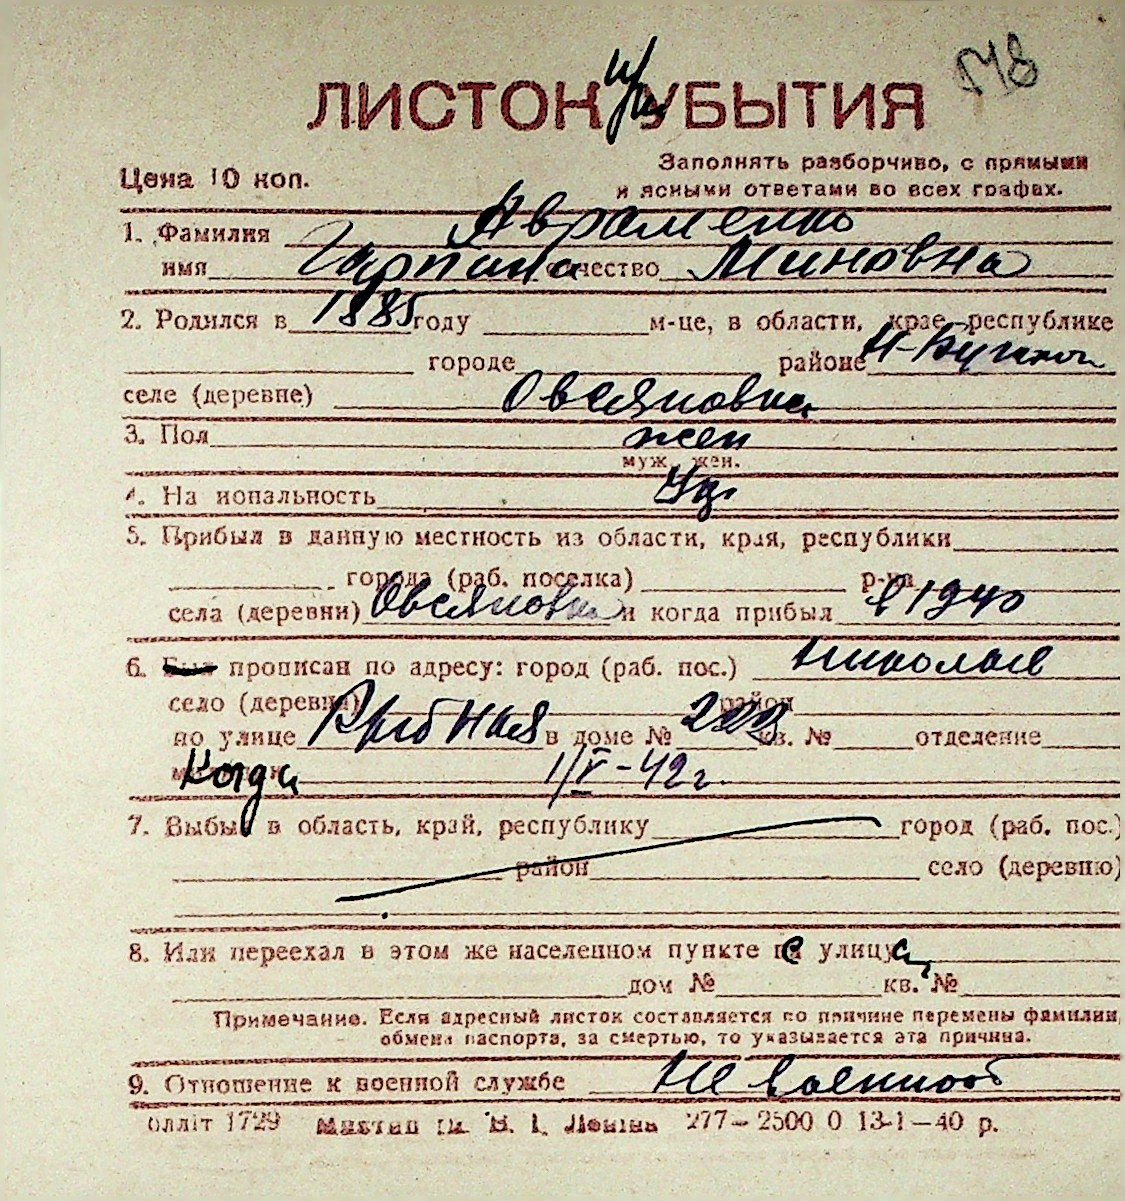 ЛИСТОК УБЫТИЯ
Цена 10 коп.
Заполнять разборчиво, с прямыми
и ясными ответами во всех графах.
1. Фамилия Авраменко
имя Гарпина отчество Миновна
2. Родился в 1885 году м-це, в области, крае, республике
городе районе
селе (деревне) Овсяновка
3. Пол жен
муж. жен.
4. Национальность Ук.
5. Прибыл в данную местность из области, края, республики
города (раб. поселка) р-на
села (деревни) Овсяновка и когда прибыл в 1940
6. Был прописан по адресу: город (раб. пос.) Николаев
село (деревня) район
по улице в доме № кв. № отделение
Когда 1/V-42 г.
7. Выбыл в область, край, республику город (раб. пос.)
район село (деревню)
8. Или переехал в этом же населенном пункте с улицы
дом № кв. №
Примечание. Если адресный листок составляется по причине перемены фамилии,
обмена паспорта, за смертью, то указывается эта причина.
9. Отношение к военной службе Не военнооб
олліт 1729 277—2500 0 13-1—40 р.